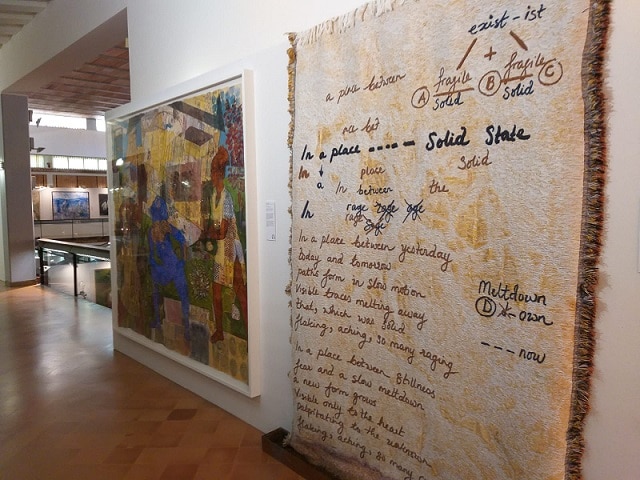 exist-ist
+
a place between
A fragile B fragile C
solid solid
In a place ----- Solid State
In place Solid
a In between the
In rage rage age
rage
In a place between yesterday
today and tomorrow
paths form in slow motion
Visible traces melting away
that, which was solid
flaking, aching, so many raging
Meltdown
D own
--- now
In a place between stillness
fear and a slow meltdown
a new form grows
Visible only to the heart
palpitating to the
flaking, aching, so many